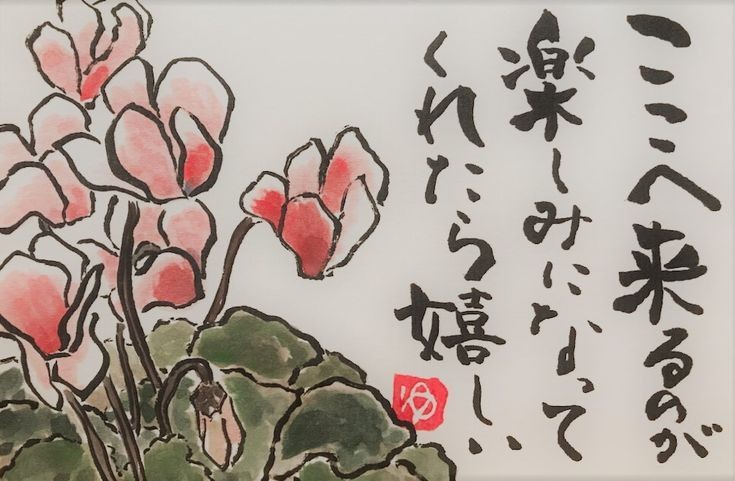 ここへ来るのが
楽しみになって
くれたら嬉しい
ゆ